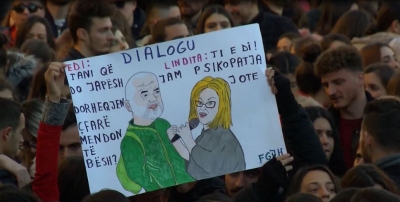 DIALOGU
EDI:
TANI QË
DO JAPËSH
DORHEQJEN
ÇFARË
MENDON
TË
BËSH?
LINDITA: TI E DI!
JAM PSIKOPATJA
JOTE